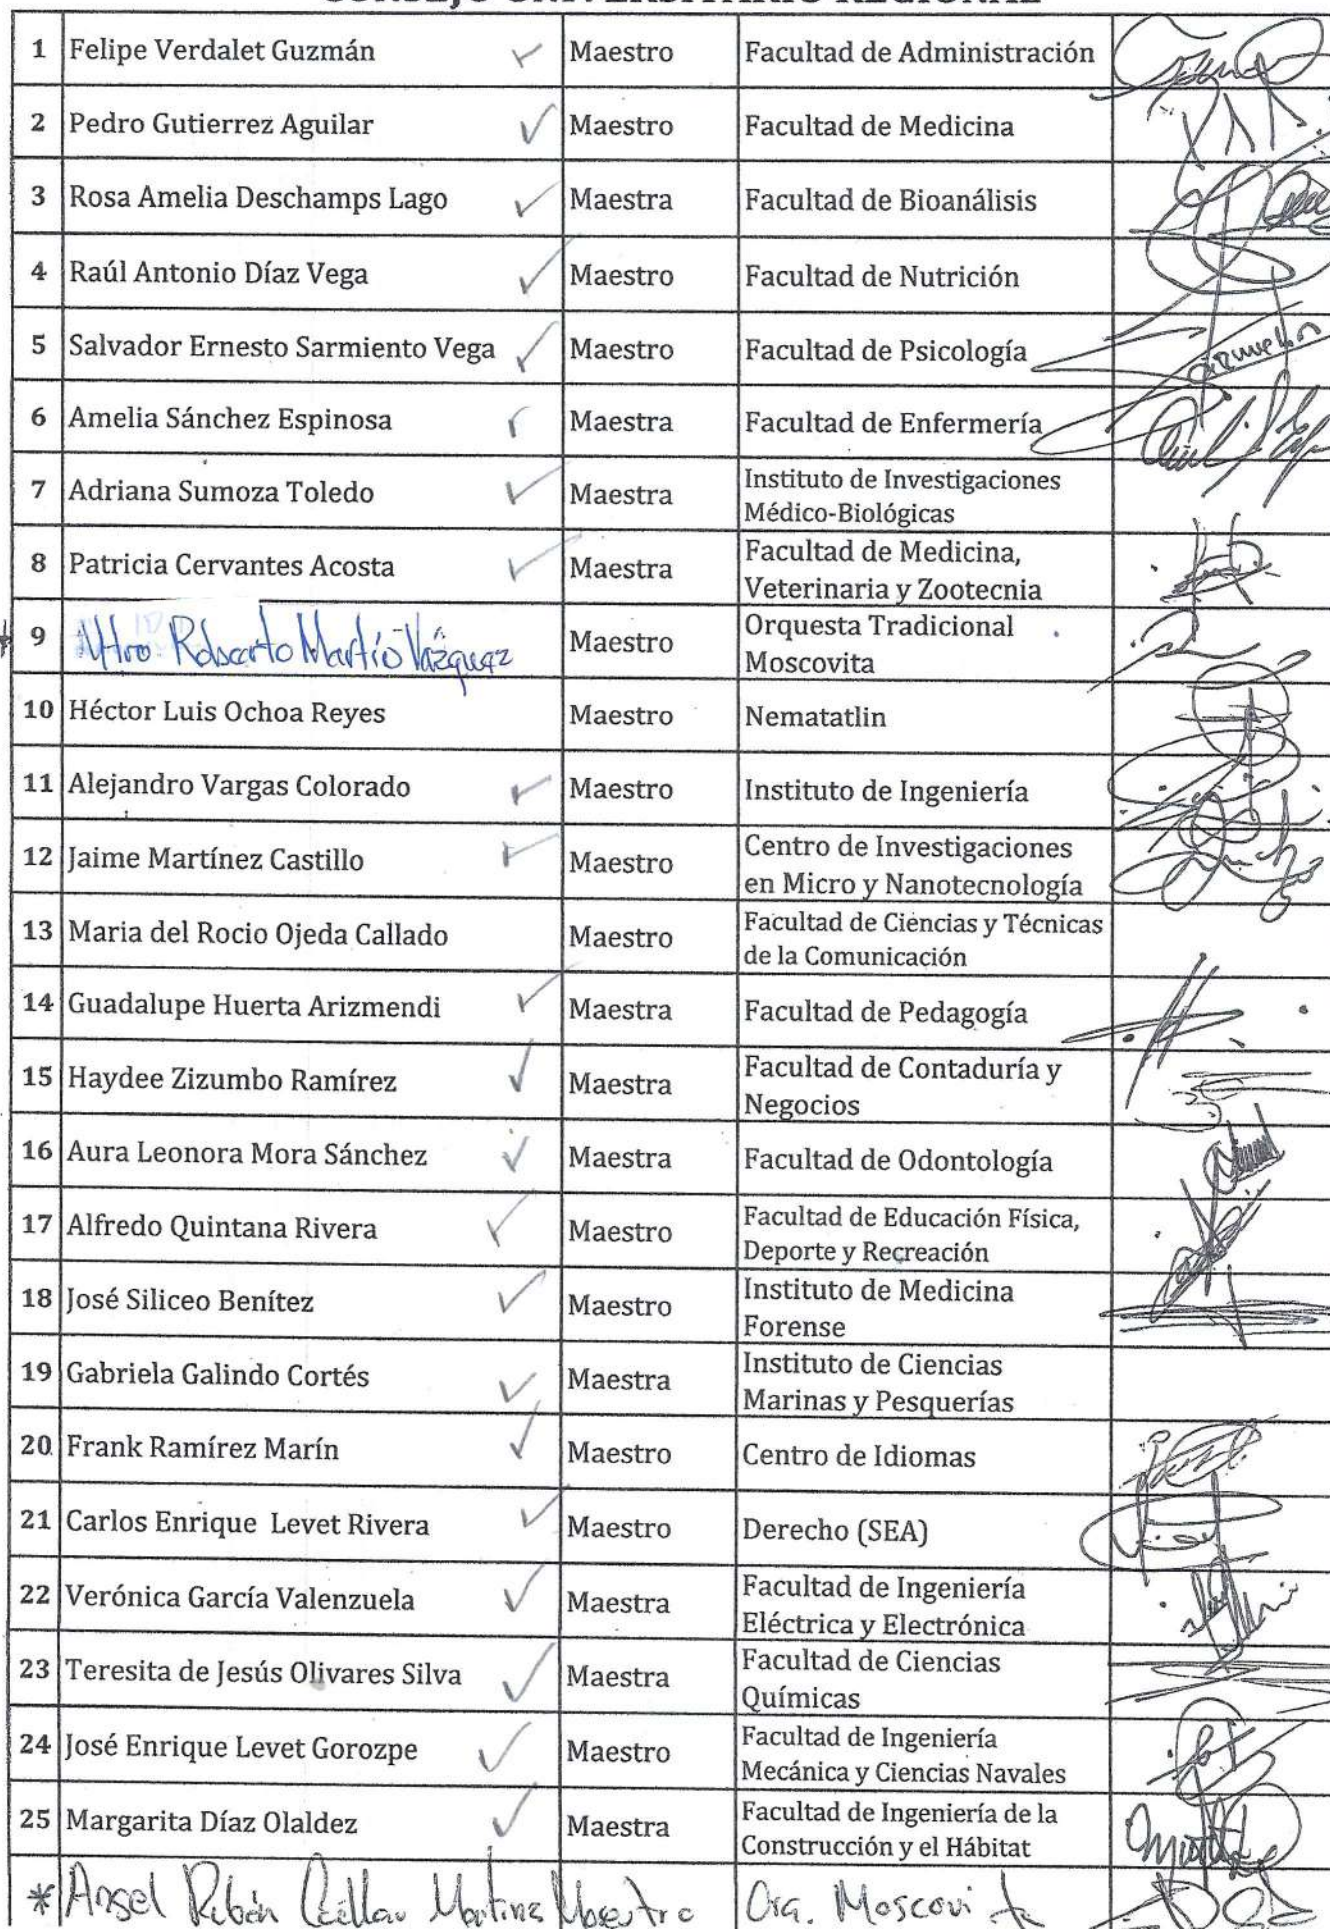 CONSEJO UNIVERSITARIO REGIONAL
1 Felipe Verdalet Guzmán Maestro Facultad de Administración
2 Pedro Gutierrez Aguilar Maestro Facultad de Medicina
3 Rosa Amelia Deschamps Lago Maestra Facultad de Bioanálisis
4 Raúl Antonio Díaz Vega Maestro Facultad de Nutrición
5 Salvador Ernesto Sarmiento Vega Maestro Facultad de Psicología
6 Amelia Sánchez Espinosa Maestra Facultad de Enfermería
7 Adriana Sumoza Toledo Maestra Instituto de Investigaciones
Médico-Biológicas
8 Patricia Cervantes Acosta Maestra Facultad de Medicina,
Veterinaria y Zootecnia
* 9 Mtro Roberto Martín Vázquez Maestro Orquesta Tradicional
Moscovita
10 Héctor Luis Ochoa Reyes Maestro Nematatlin
11 Alejandro Vargas Colorado Maestro Instituto de Ingeniería
12 Jaime Martínez Castillo Maestro Centro de Investigaciones
en Micro y Nanotecnología
13 Maria del Rocio Ojeda Callado Maestro Facultad de Ciencias y Técnicas
de la Comunicación
14 Guadalupe Huerta Arizmendi Maestra Facultad de Pedagogía
15 Haydee Zizumbo Ramírez Maestra Facultad de Contaduría y
Negocios
16 Aura Leonora Mora Sánchez Maestra Facultad de Odontología
17 Alfredo Quintana Rivera Maestro Facultad de Educación Física,
Deporte y Recreación
18 José Siliceo Benítez Maestro Instituto de Medicina
Forense
19 Gabriela Galindo Cortés Maestra Instituto de Ciencias
Marinas y Pesquerías
20 Frank Ramírez Marín Maestro Centro de Idiomas
21 Carlos Enrique Levet Rivera Maestro Derecho (SEA)
22 Verónica García Valenzuela Maestra Facultad de Ingeniería
Eléctrica y Electrónica
23 Teresita de Jesús Olivares Silva Maestra Facultad de Ciencias
Químicas
24 José Enrique Levet Gorozpe Maestro Facultad de Ingeniería
Mecánica y Ciencias Navales
25 Margarita Díaz Olaldez Maestra Facultad de Ingeniería de la
Construcción y el Hábitat
* Angel Rubén Maestro